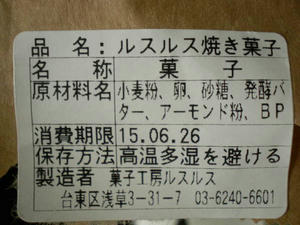 品 名：ルスルス焼き菓子
名 称 菓 子
原材料名 小麦粉、卵、砂糖、発酵バ
ター、アーモンド粉、ＢＰ
消費期限 15.06.26
保存方法 高温多湿を避ける
製造者 菓子工房ルスルス
台東区浅草3-31-7 03-6240-6601